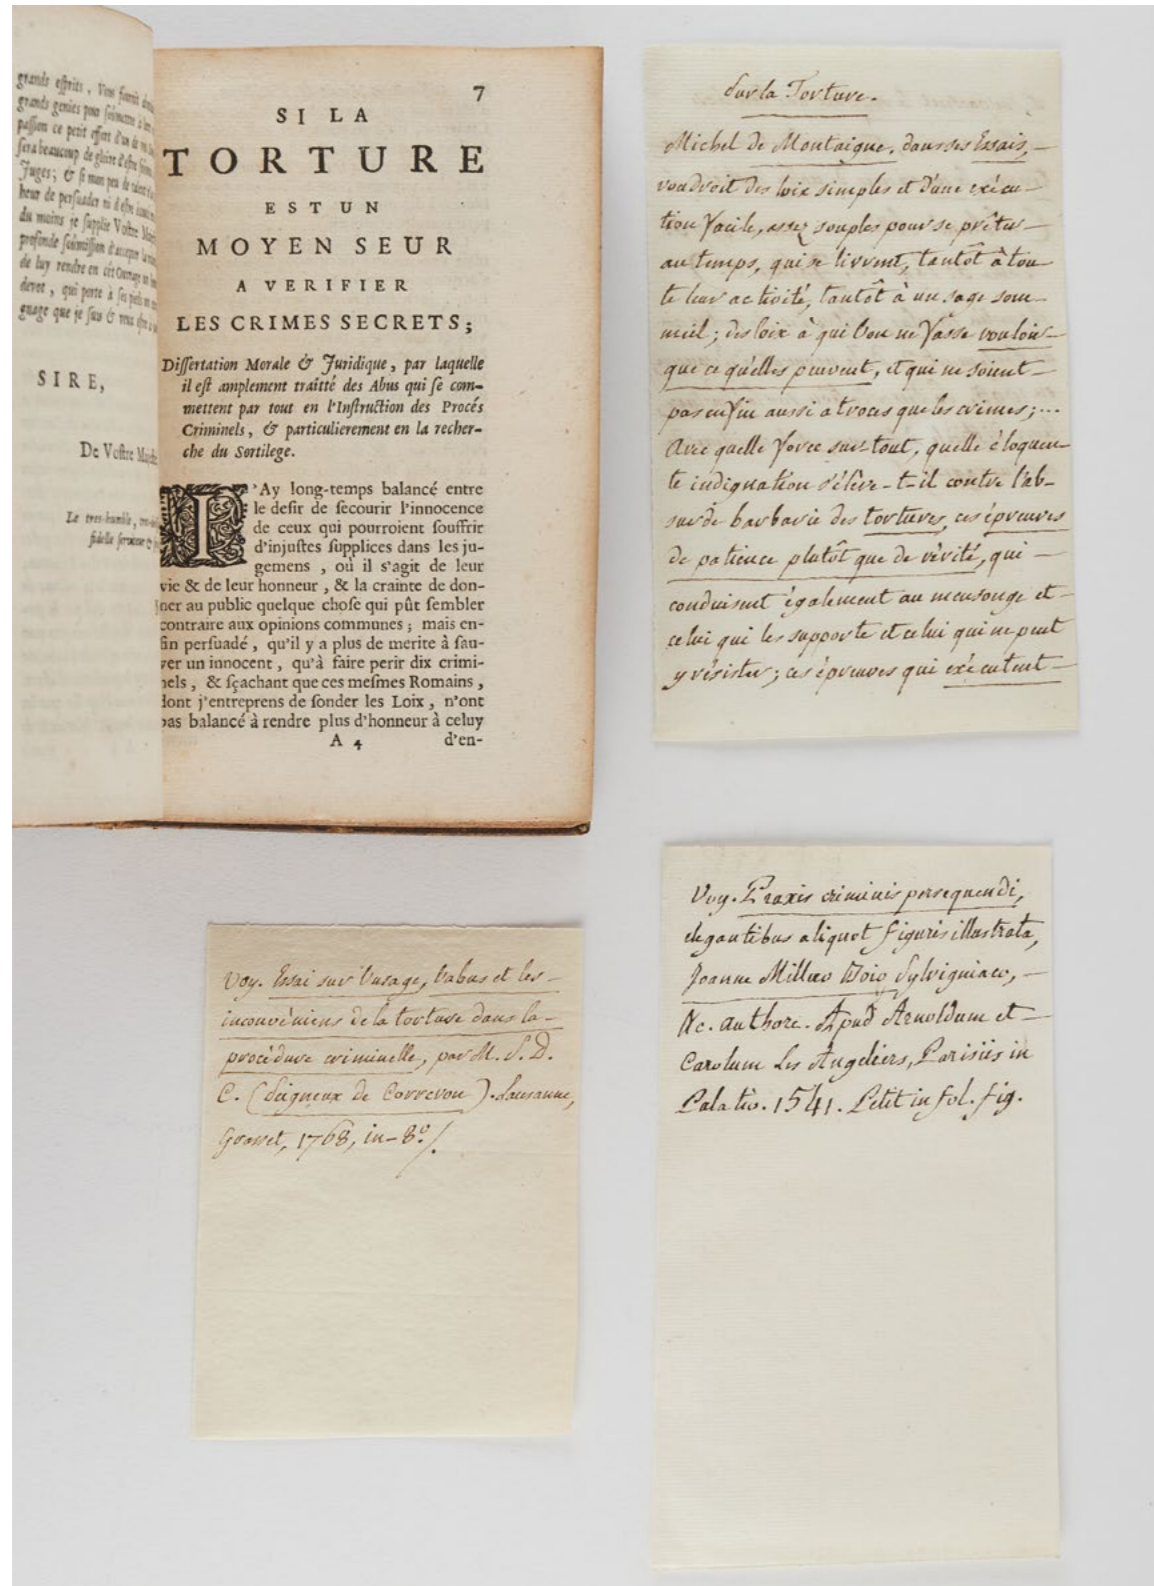 grands esprits, Vous
grands genies pour soûmettre à
passion ce petit effort d'un de
sera beaucoup de gloire d'estre
Juges; & si mon peu de
heur de persuader ni d'estre
du moins je supplie Vostre
profonde soûmission d'accepter
de luy rendre en cét Ouvrage un
devot, qui porte à ses pieds un
guage que je suis & veux estre à
SIRE,
De Vostre
Le tres-humble,
fidelle serviteur &
7
SI LA
TORTURE
EST UN
MOYEN SEUR
A VERIFIER
LES CRIMES SECRETS;
Dissertation Morale & Juridique, par laquelle
il est amplement traitté des Abus qui se com-
mettent par tout en l'Instruction des Procés
Criminels, & particulierement en la recher-
che du Sortilege.
I'Ay long-temps balancé entre
le desir de secourir l'innocence
de ceux qui pourroient souffrir
d'injustes supplices dans les ju-
gemens, où il s'agit de leur
vie & de leur honneur, & la crainte de don-
ner au public quelque chose qui pût sembler
contraire aux opinions communes; mais en-
fin persuadé, qu'il y a plus de merite à sau-
ver un innocent, qu'à faire perir dix crimi-
nels, & sçachant que ces mesmes Romains,
dont j'entreprens de sonder les Loix, n'ont
pas balancé à rendre plus d'honneur à celuy
A 4 d'en-
Sur la Torture.
Michel de Montaigne, dans ses Essais,
voudroit des loix simples et d'une exécu-
tion facile, assez souples pour se prêter
au temps, qui se livrent, tantôt à tou-
te leur activité, tantôt à un sage som-
meil; des loix à qui l'on ne fasse vouloir
que ce qu'elles peuvent, et qui ne soient
pas enfin aussi atroces que les crimes;...
Avec quelle force sur-tout, quelle éloquen-
te indignation s'élève-t-il contre l'ab-
surde barbarie des tortures, ces épreuves
de patience plutôt que de vérité, qui
conduisent également au mensonge et
celui qui les supporte et celui qui ne peut
y résister; ces épreuves qui exécutent
Voy. Essai sur l'usage, l'abus et les
inconvéniens de la torture dans la
procédure criminelle, par M. S. D.
C. (Seigneux de Correvon). Lausanne,
Grasset, 1768, in-8º/.
Voy. Praxis criminis persequendi,
elegantibus aliquot figuris illustrata,
Joanne Millæo Boio Sylvigniaco,
&c. authore. Apud Arnoldum et
Carolum Les Angeliers, Parisiis in
Palatio. 1541. Petit in fol. fig.